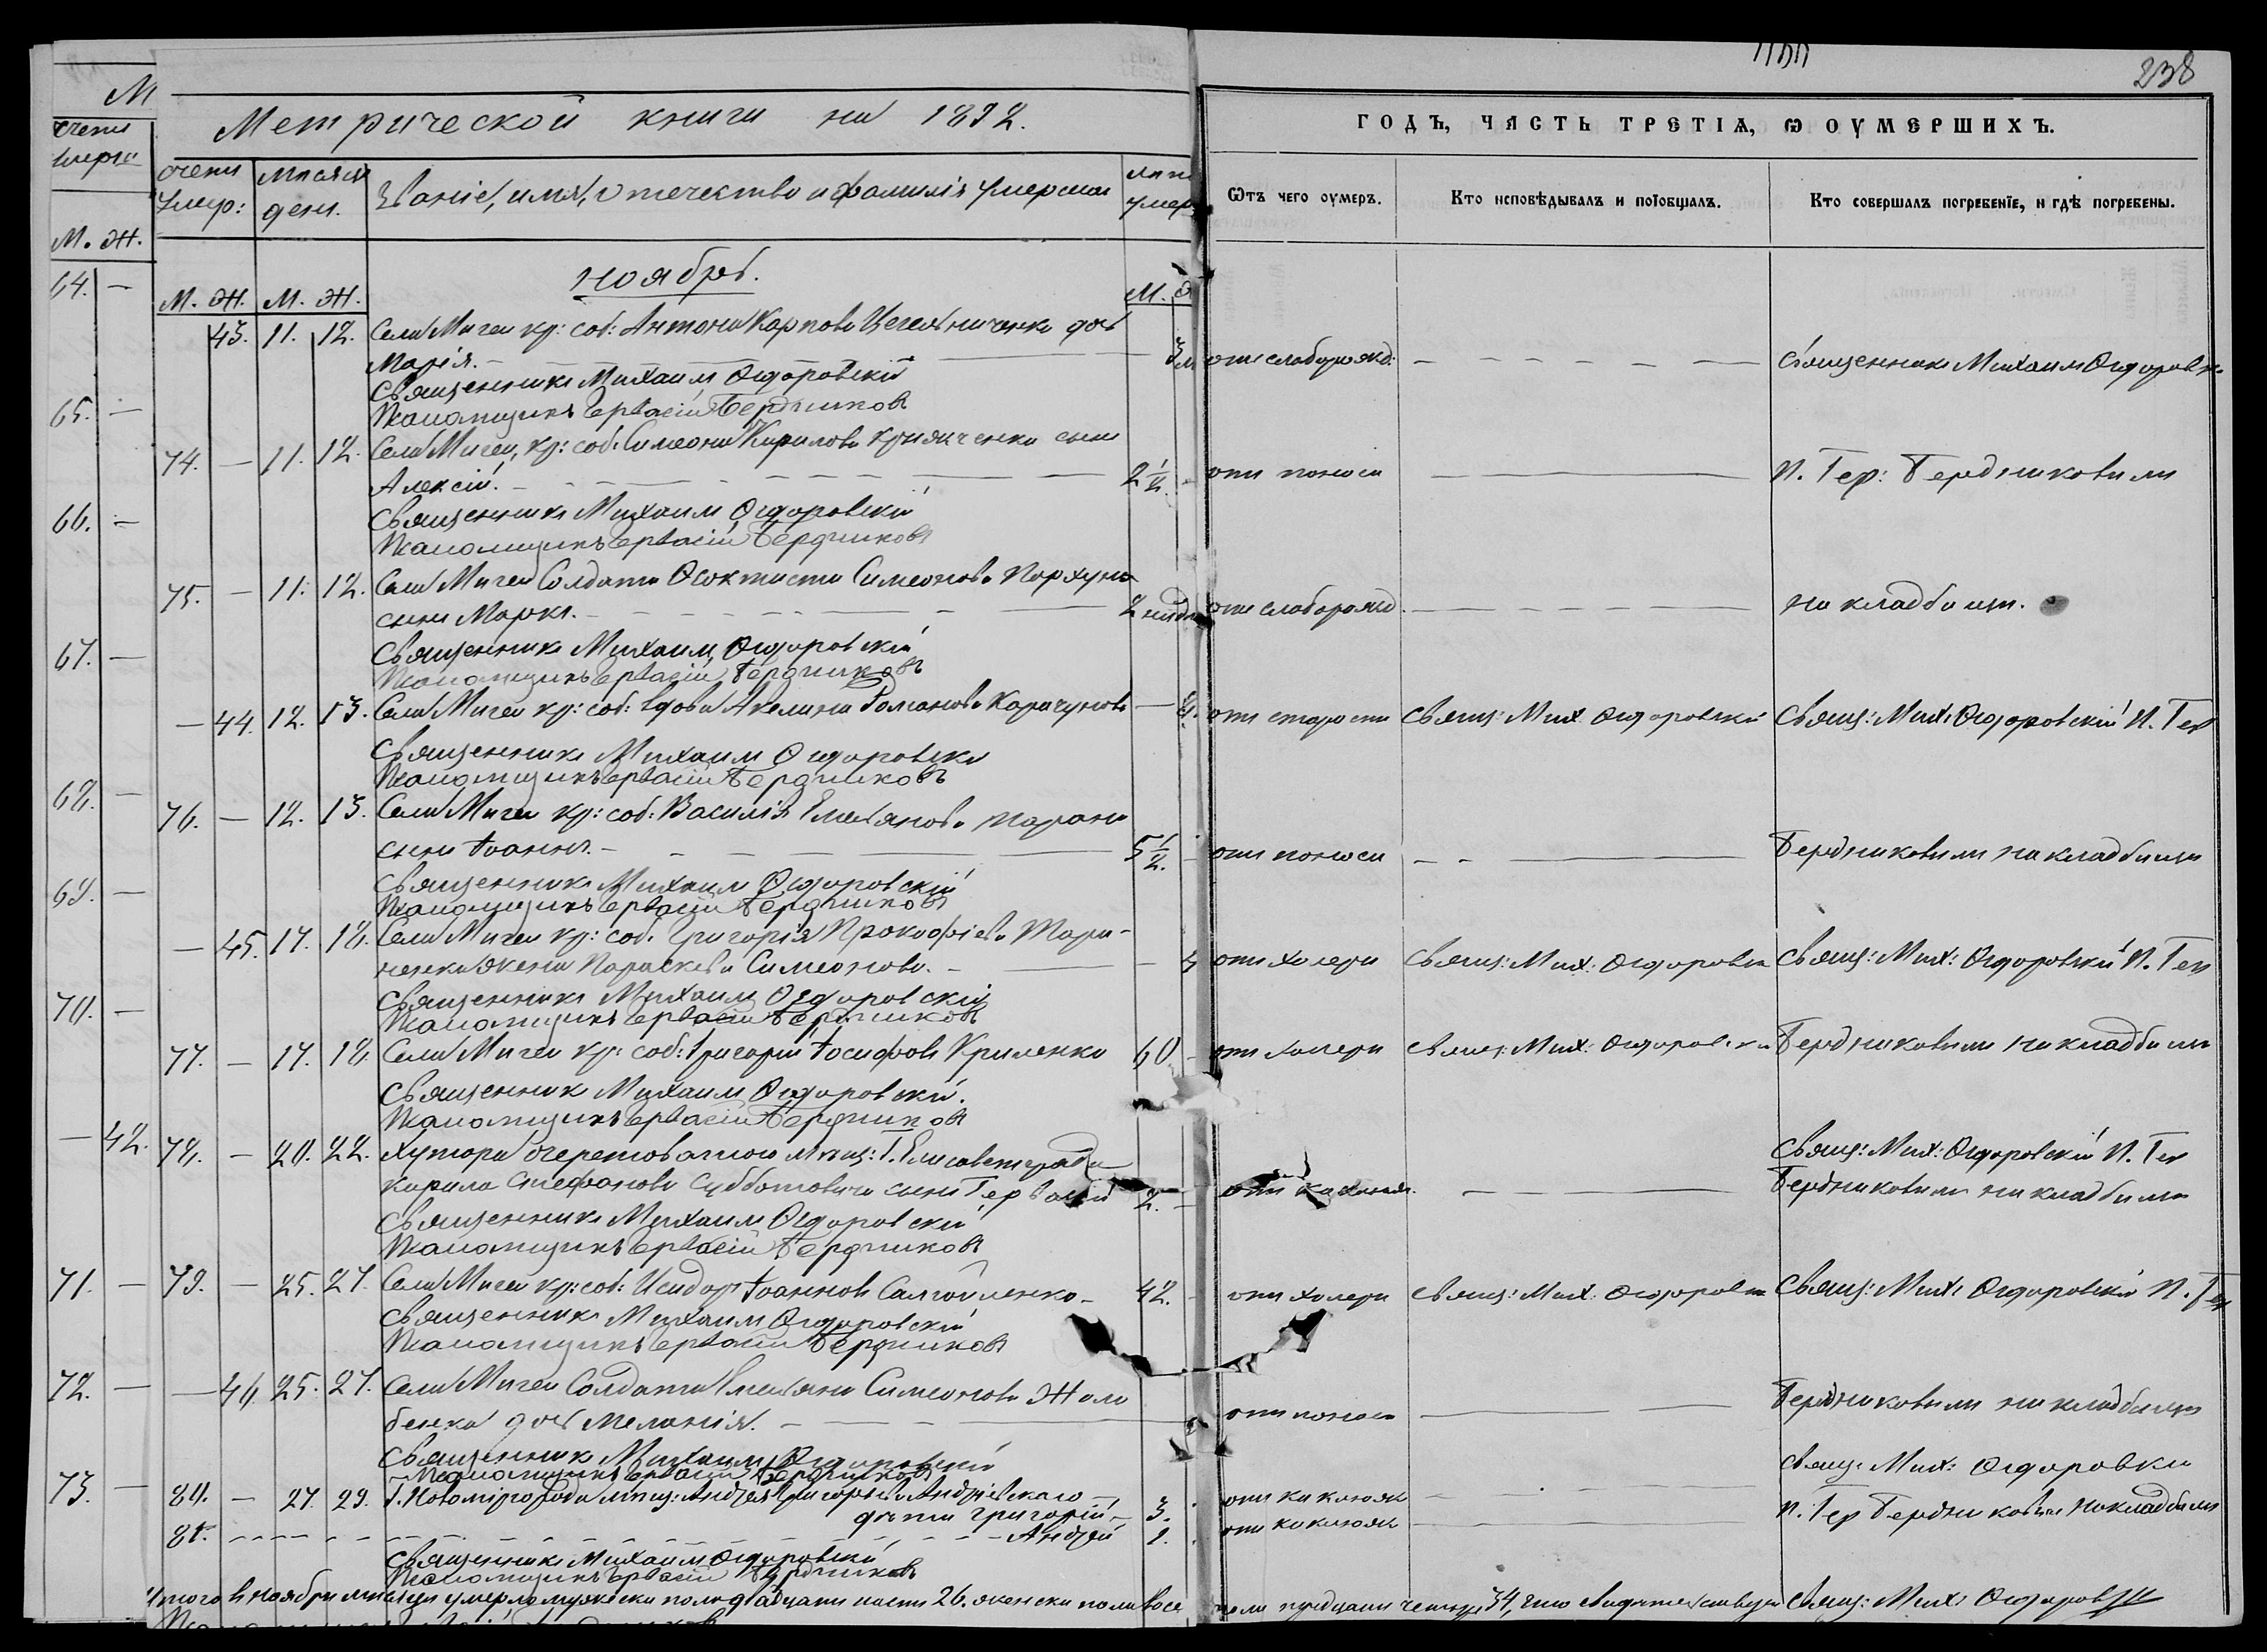 238
М
счетъ
умерш
М. Ж.
64. —
65. —
66. —
67. —
68. —
69. —
70. —
— 42.
71. —
72. —
73. —
Метрической книги на 1892.
ГОДЪ, ЧАСТЬ ТРЕТІѦ, Ѡ ОУМЕРШИХЪ.
счетъ умер:
Мѣсяцъ день.
Званіе, имя, отечество и фамилія умерших
лѣт умер
Ѿтъ чего оумеръ.
Кто исповѣдывалъ и пріобщалъ.
Кто совершалъ погребеніе, и гдѣ погребены.
ноябрь.
М. Ж. М. Ж. М.
43. 11. 12. Села Мигеи кр: соб: Антона Карпова Цегельниченка дочь
Марія. — 3 м отъ слаборожд: — Священникъ Михаилъ Ѳедоровск
Священникъ Михаилъ Ѳедоровскій
Псаломщикъ Гервасій Бердниковъ
74. — 11. 12. Села Мигеи, кр: соб: Симеона Кирилова сынъ
Алексій. — 2 1/2. отъ поноса — П. Гер: Бердниковымъ
Священникъ Михаилъ Ѳедоровскій
Псаломщикъ Гервасій Бердниковъ
75. — 11. 12. Села Мигеи Солдата Ѳеоктиста Симеонова Пархуна
сынъ Маркъ. — 2 недѣл отъ слаборожд. — на кладбищѣ.
Священникъ Михаилъ Ѳедоровскій
Псаломщикъ Гервасій Бердниковъ
— 44. 12. 13. Села Мигеи кр: соб: вдова Акелина Романова Карачунова — отъ старости Священ: Мих Ѳедоровскій Свящ: Мих: Ѳедоровскій П. Гер
Священникъ Михаилъ Ѳедоровскій
Псаломщикъ Гервасій Бердниковъ
76. — 12. 13. Села Мигеи кр: соб: Василія Емельянова Тарана
сынъ Іоаннъ. — 5 1/2. отъ поноса — Бердниковымъ на кладбищѣ
Священникъ Михаилъ Ѳедоровскій
Псаломщикъ Гервасій Бердниковъ
— 45. 17. 18. Села Мигеи кр: соб. Григорія Прокофіева
ненка жена Параскева Симеонова. — отъ холеры Свящ: Мих: Ѳедоровск Свящ: Мих: Ѳедоровскій П. Гер
Священникъ Михаилъ Ѳедоровскій
Псаломщикъ Гервасій Бердниковъ
77. — 17. 18. Села Мигеи кр: соб: Григорій Іосифовъ Криленко 60. отъ холеры Свящ: Мих: Ѳедоровскій Бердниковымъ на кладбищѣ
Священникъ Михаилъ Ѳедоровскій.
Псаломщикъ Гервасій Бердниковъ
78. — 20. 22. Хутора мѣщ: Г. Елисаветграда Свящ: Мих: Ѳедоровскій П. Гер
Кирила Стефанова Субботовича сынъ Гервасій 2. — Бердниковымъ на кладбищѣ
Священникъ Михаилъ Ѳедоровскій
Псаломщикъ Гервасій Бердниковъ
79. — 25. 27. Села Мигеи кр: соб: Исидоръ Іоанновъ 42. отъ холеры Свящ: Мих: Ѳедоровск Свящ: Мих: Ѳедоровскій П. Гер
Священникъ Михаилъ Ѳедоровскій
Псаломщикъ Гервасій Бердниковъ
— 46. 25. 27. Села Мигеи Солдата Емельяна Симеонова Жоло Бердниковымъ на кладбищѣ
бенка дочь Меланія. — отъ поноса —
Священникъ Михаилъ Ѳедоровскій Свящ: Мих: Ѳедоровск
Псаломщикъ Гервасій Бердниковъ
80. — 27. 29. Г. Новомиргорода мѣщ: Андрея Григорьева Андріевскаго
дѣти Григорій — 3. отъ коклюша — П. Гер Бердниковым на кладбищѣ
81. — Андрей 1. отъ коклюша —
Священникъ Михаилъ Ѳедоровскій
Псаломщикъ Гервасій Бердниковъ
Итого в ноябрѣ мѣсяцѣ умерло мужеска пола двадцать шесть 26. женска пола восе пола тридцать четыре 34, что свидѣтельствуемъ Свящ: Мих: Ѳедоров